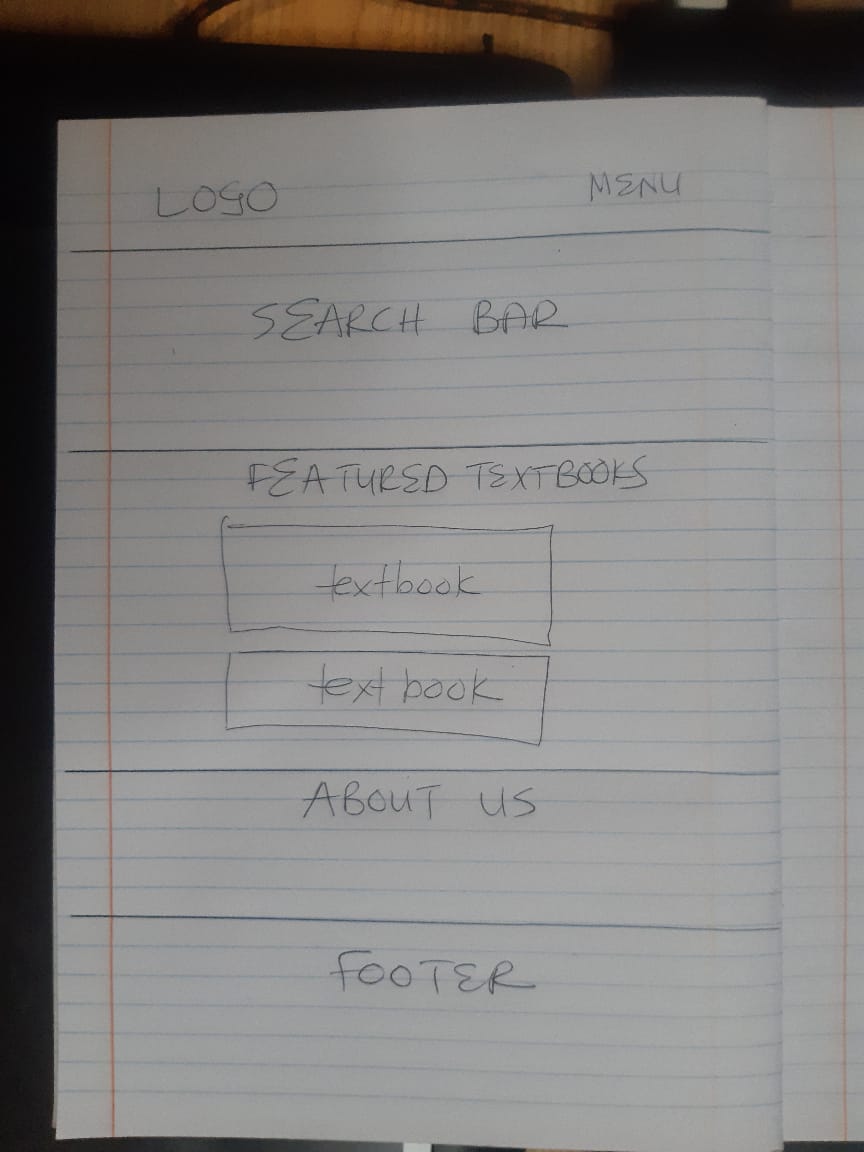 LOGO
MENU
SEARCH BAR
FEATURED TEXTBOOKS
textbook
text book
ABOUT US
FOOTER